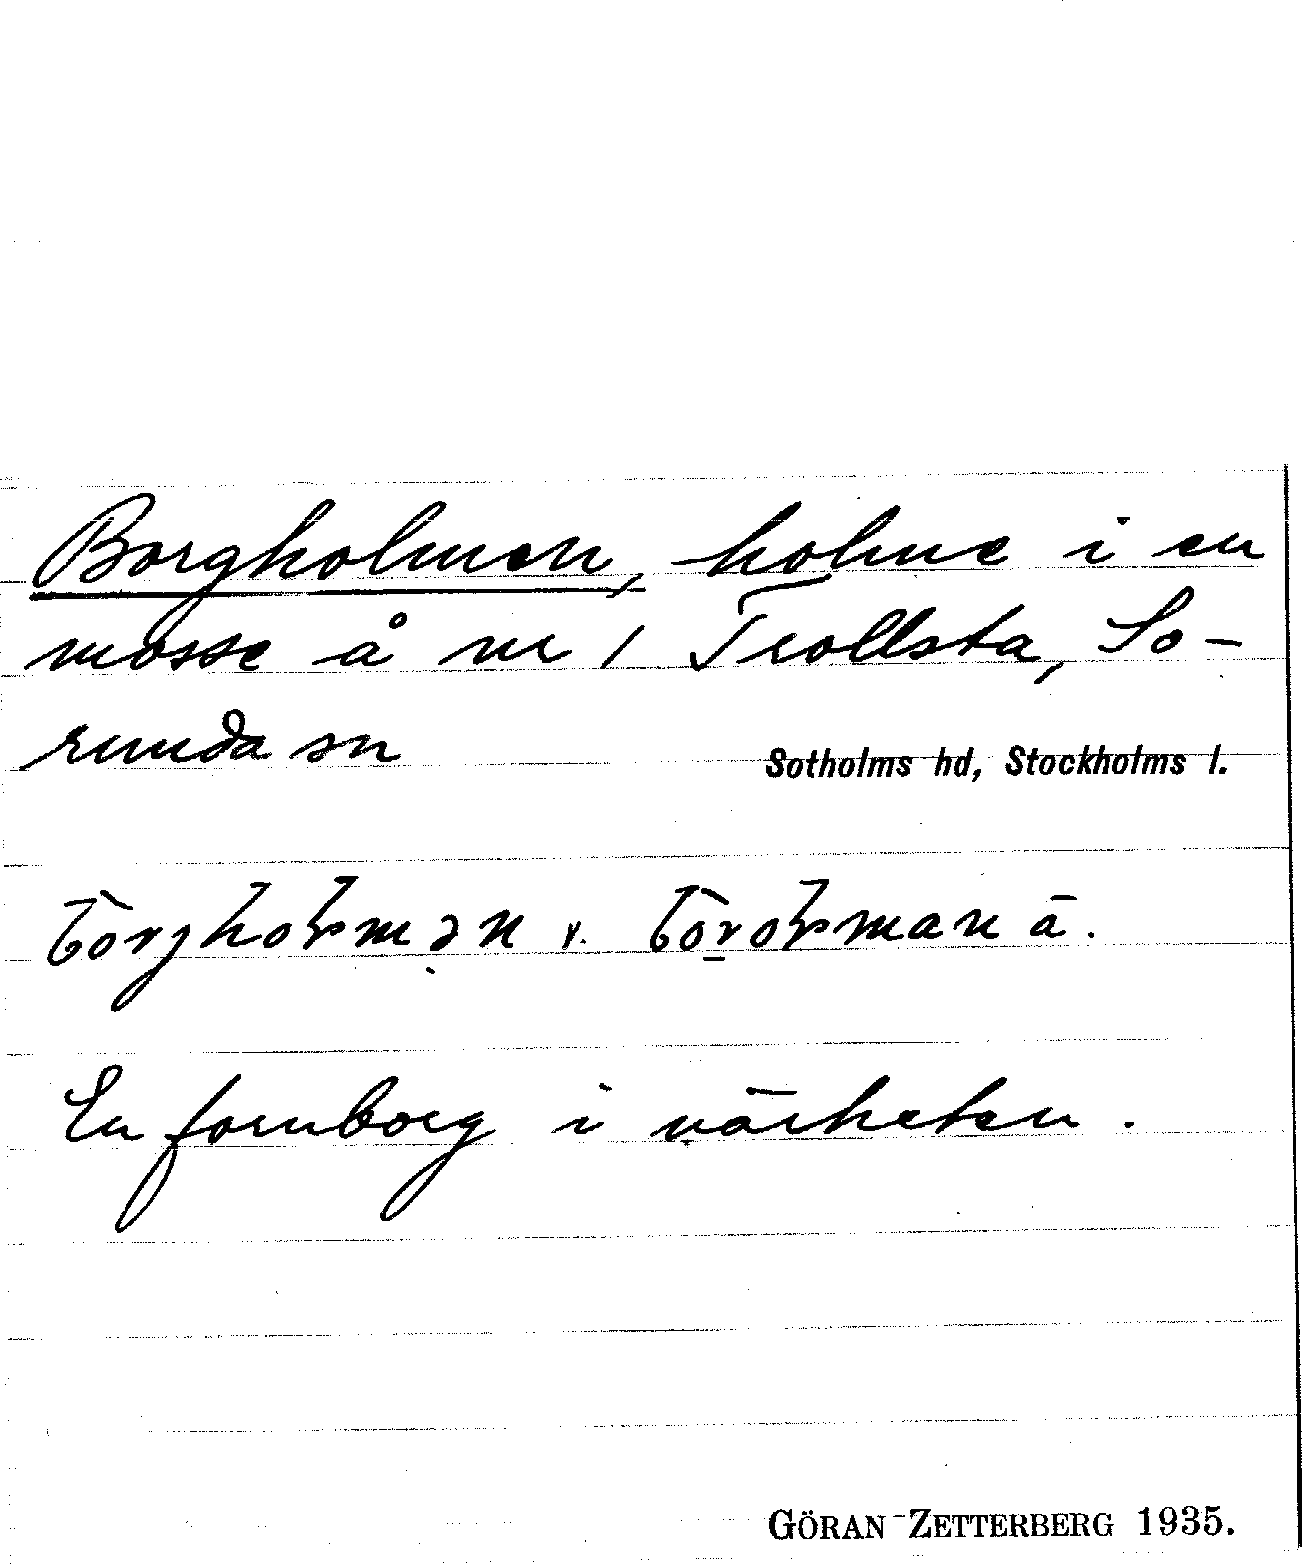 Borgholmen, holme i en
mosse å nr 1 Trollsta, So-
runda sn
Sotholms hd, Stockholms l.
En fornborg i närheten.
GÖRAN ZETTERBERG 1935.